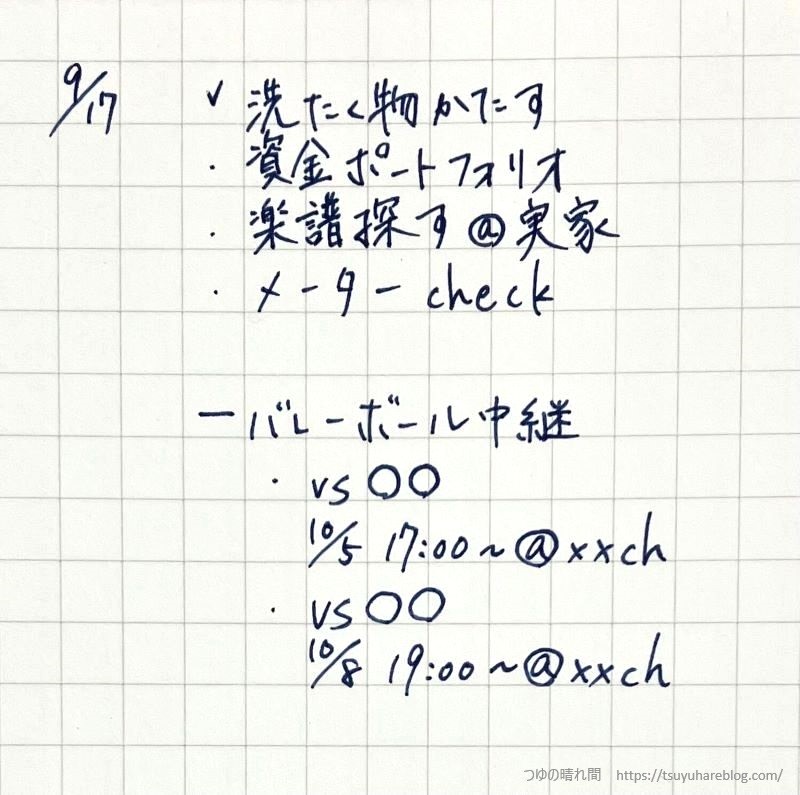 9/17
✓ 洗たく物かたす
・資金ポートフォリオ
・楽譜探す@実家
・メーターcheck
ーバレーボール中継
・vs〇〇
10/5 17:00~@xxch
・vs〇〇
10/8 19:00~@xxch
つゆの晴れ間 https://tsuyuhareblog.com/